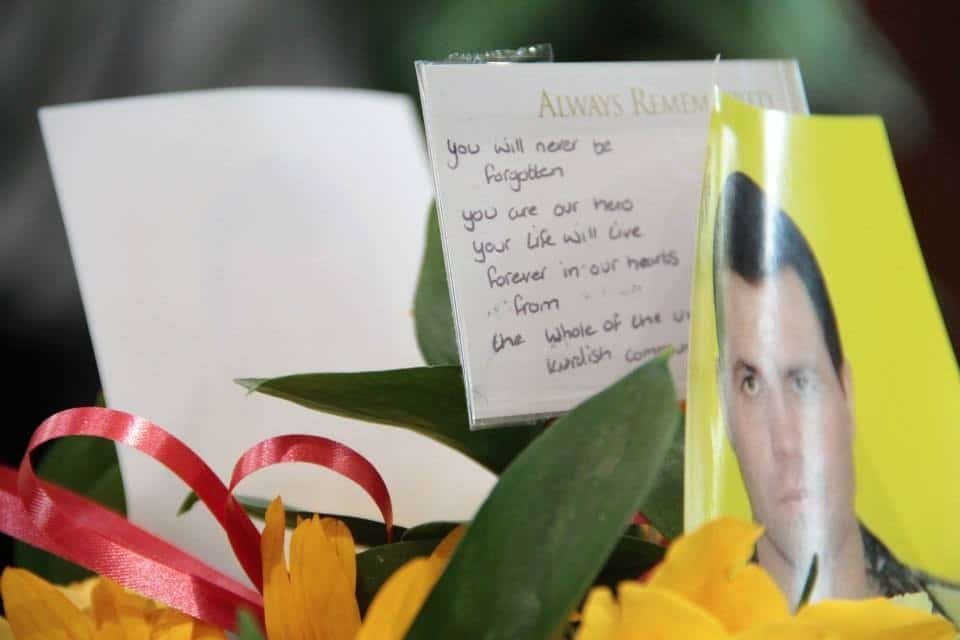 ALWAYS REMEMBERED
you will never be
forgotten
you are our hero
your life will live
forever in our hearts
from
the whole of the
kurdish